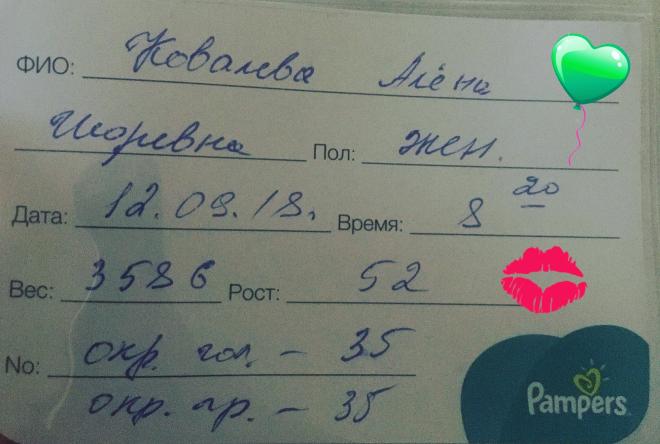 ФИО: Ковалева Алёна
Игоревна Пол: жен.
Дата: 12.09.18. Время: 8 20
Вес: 3586 Рост: 52
No: окр. гол. – 35
окр. гр. – 35
Pampers